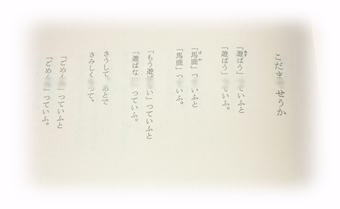 こだませうか
「遊ばう」ていふと
「遊ばう」ていふ。
「馬鹿」ていふと
「馬鹿」ていふ。
「もう遊ばい」つていふと
「遊ばな」つていふ。
さうして、とで
さみしくつて、
「ごめん」つていふと
「ごめん」つていふ。